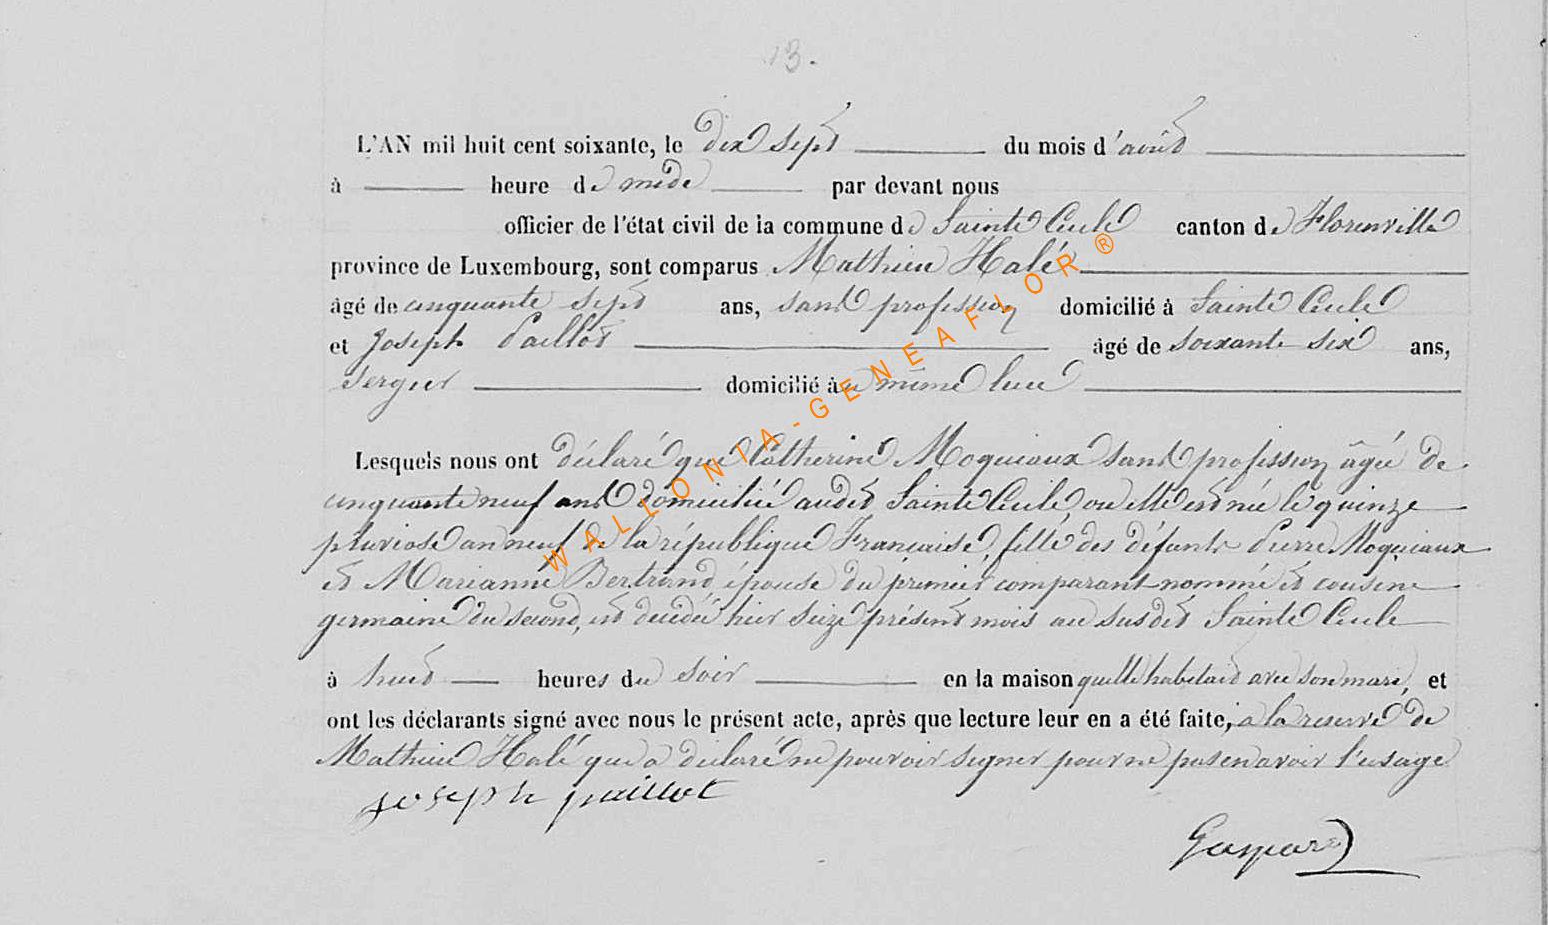 13.
L'AN mil huit cent soixante, le dix sept du mois d'août
à heure de midi par devant nous
officier de l'état civil de la commune de Sainte Cécile canton de Florenville
province de Luxembourg, sont comparus Mathieu Halé
âgé de cinquante sept ans, sans profession domicilié à Sainte Cécile
et Joseph Paillot âgé de soixante six ans,
Sergier domicilié au même lieu
Lesquels nous ont déclaré que Catherine Moquiaux sans profession âgée de
cinquante neuf ans domiciliée audit Sainte Cécile ou elle est née le quinze
pluviose an neuf de la république Française, fille des défunts Pierre Moquiaux
et Marianne Bertrand, épouse du premier comparant nommé et cousine
germaine du second, est décédée hier seize présent mois au susdit Sainte Cécile
à huit heures du soir en la maison quelle habitait avec son mari, et
ont les déclarants signé avec nous le présent acte, après que lecture leur en a été faite, a la reserve de
Mathieu Halé qui a déclaré ne pouvoir signer pour ne pas en avoir l'usage
joseph paillot
Gaspard
WALLONIA-GENEAFLOR ®